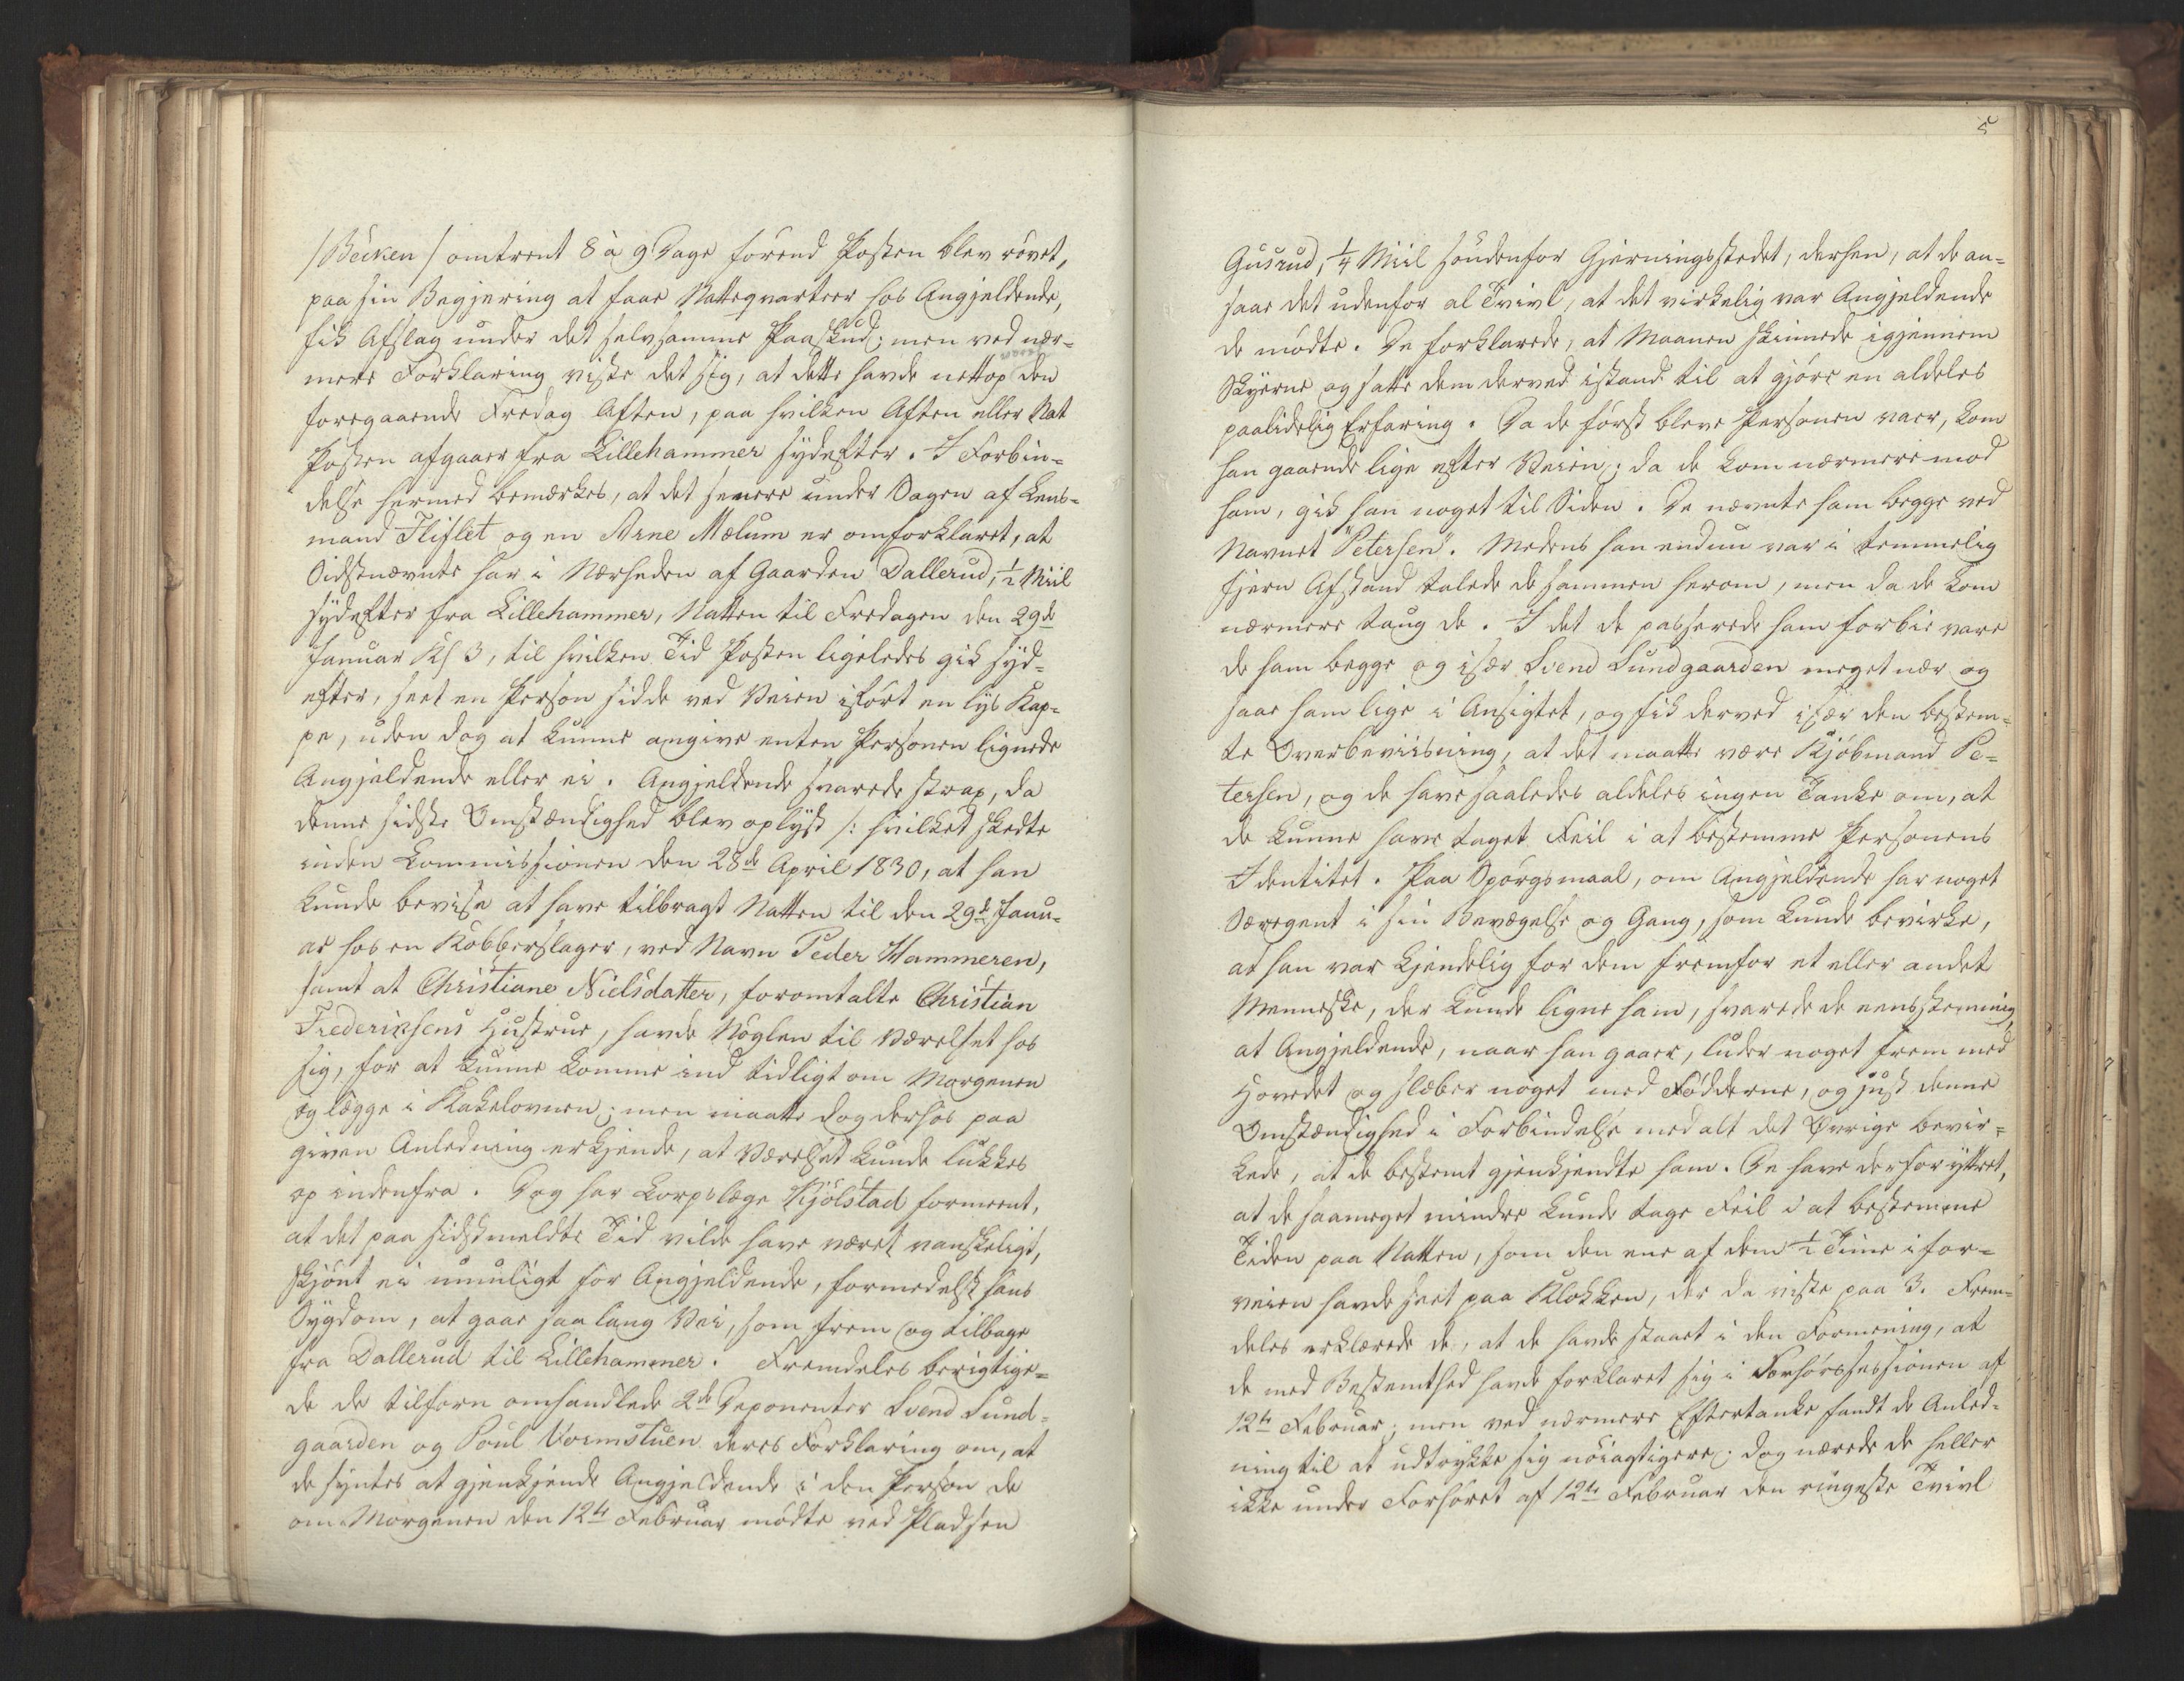 /Bæcken/ omtrent 8 à 9 Dage förend Posten blev rövet,
paa sin Begjering at faae Nattegvarteer hos Angjeldende,
fik Afslag under det selvsamme Paaskud; men ved nær-
mere Forklaring viste det sig, at dette havde nettop den
foregaaende Fredag Aften, paa hvilken Aften eller Nat
Posten afgaaer fra Lillehammer sydefter. I Forbin-
delse hermed bemærkes, at det senere under Sagen af Lens-
mand Fliflet og en Arne Mælum er omforklaret, at
Sidstnævnte har i Nærheden af Gaarden Dallerud, 1/2 Miil
sydefter fra Lillehammer, Natten til Fredagen den 29de
Januar Kl 3, til hvilken Tid Posten ligeledes gik syd-
efter, seet en Person sidde ved Veien ifört en lys Kap-
pe, uden dog at kunne angive enten Personen lignede
Angjeldende eller ei. Angjeldende svarede strax, da
denne sidste Omstændighed blev oplyst /: hvilket skedte
inden Commissionen den 28de April 1830, at han
kunde bevise at have tilbragt Natten til den 29de Janu-
ar hos en Kobberslager, ved Navn Peder Hammeren,
samt at Christiane Nielsdatter, foromtalte Christian
Frederiksens Hustrue, havde Nöglen til Værelset hos
sig, for at kunne komme ind tidligt om Morgenen
og lægge i Kakelovnen; men maatte dog derhos paa
given Anledning erkjende, at Værelset kunde lukkes
op indenfra. Dog har Corpslæge Kjölstad formeent,
at det paa sidstmeldte Tid vilde have været vanskeligt,
skjönt ei umuligt for Angjeldende, formedelst hans
Sygdom, at gaae saa lang Vei, som frem og tilbage
fra Dallerud til Lillehammer. Fremdeles berigtige-
de de tilforn omhandlede 2de Deponenter Svend Sund-
gaarden og Poul Vormstuen deres Forklaring om, at
de syntes at gjenkjende Angjeldende i den Person de
om Morgenen den 12te Februar mödte ved Pladsen
5
Gusrud, 1/4 Miil söndenfor Gjerningsstedet, derhen, at de an-
saae det udenfor al Tvivl, at det virkelig var Angjeldende
de mödte. De forklarede, at Maanen skinnede igjennem
Skyerne og satte dem derved istand til at gjöre en aldeles
paalidelig Erfaring. Da de först bleve Personen vaer, kom
han gaaende lige efter Veien; da de kom nærmere mod
ham, gik han noget til Siden. De nævnte ham begge ved
Navnet "Petersen". Medens han endnu var i temmelig
fjern Afstand talede de sammen herom, men da de kom
nærmere taug de. I det de passerede ham forbie vare
de ham begge og især Svend Sundgaarden meget nær og
saae ham lige i Ansigtet, og fik derved især den bestem-
te Overbeviisning, at det maatte være Kjöbmand Pe-
tersen, og de have saaledes aldeles ingen Tanke om, at
de kunne have taget Feil i at bestemme Personens
Identitet. Paa Spörgsmaal, om Angjeldende har noget
Særegent i sin Bevægelse og Gang, som kunde bevirke,
at han var kjendelig for dem fremfor et eller andet
Menneske, der kunde ligne ham, svarede de eensstemmig,
at Angjeldende, naar han gaaer, luder noget frem med
Hovedet og slæber noget med Födderne, og just denne
Omstændighed i Forbindelse med alt det Övrige bevir-
kede, at de bestemt gjenkjendte ham. De have derfor yttret,
at de saameget mindre kunde tage Feil i at bestemme
Tiden paa Natten, som den ene af dem 1/2 Time i for-
veien havde seet paa Klokken, der da viste paa 3. Frem-
deles erklærede de, at de havde staaet i den Formening, at
de med Bestemthed havde forklaret sig i Forhörssessionen af
12te Februar; men ved nærmere Eftertanke fandt de Anled-
ning til at udtrykke sig nöiagtigere; dog nærede de heller
ikke under Forhöret af 12te Februar den ringeste Tvivl